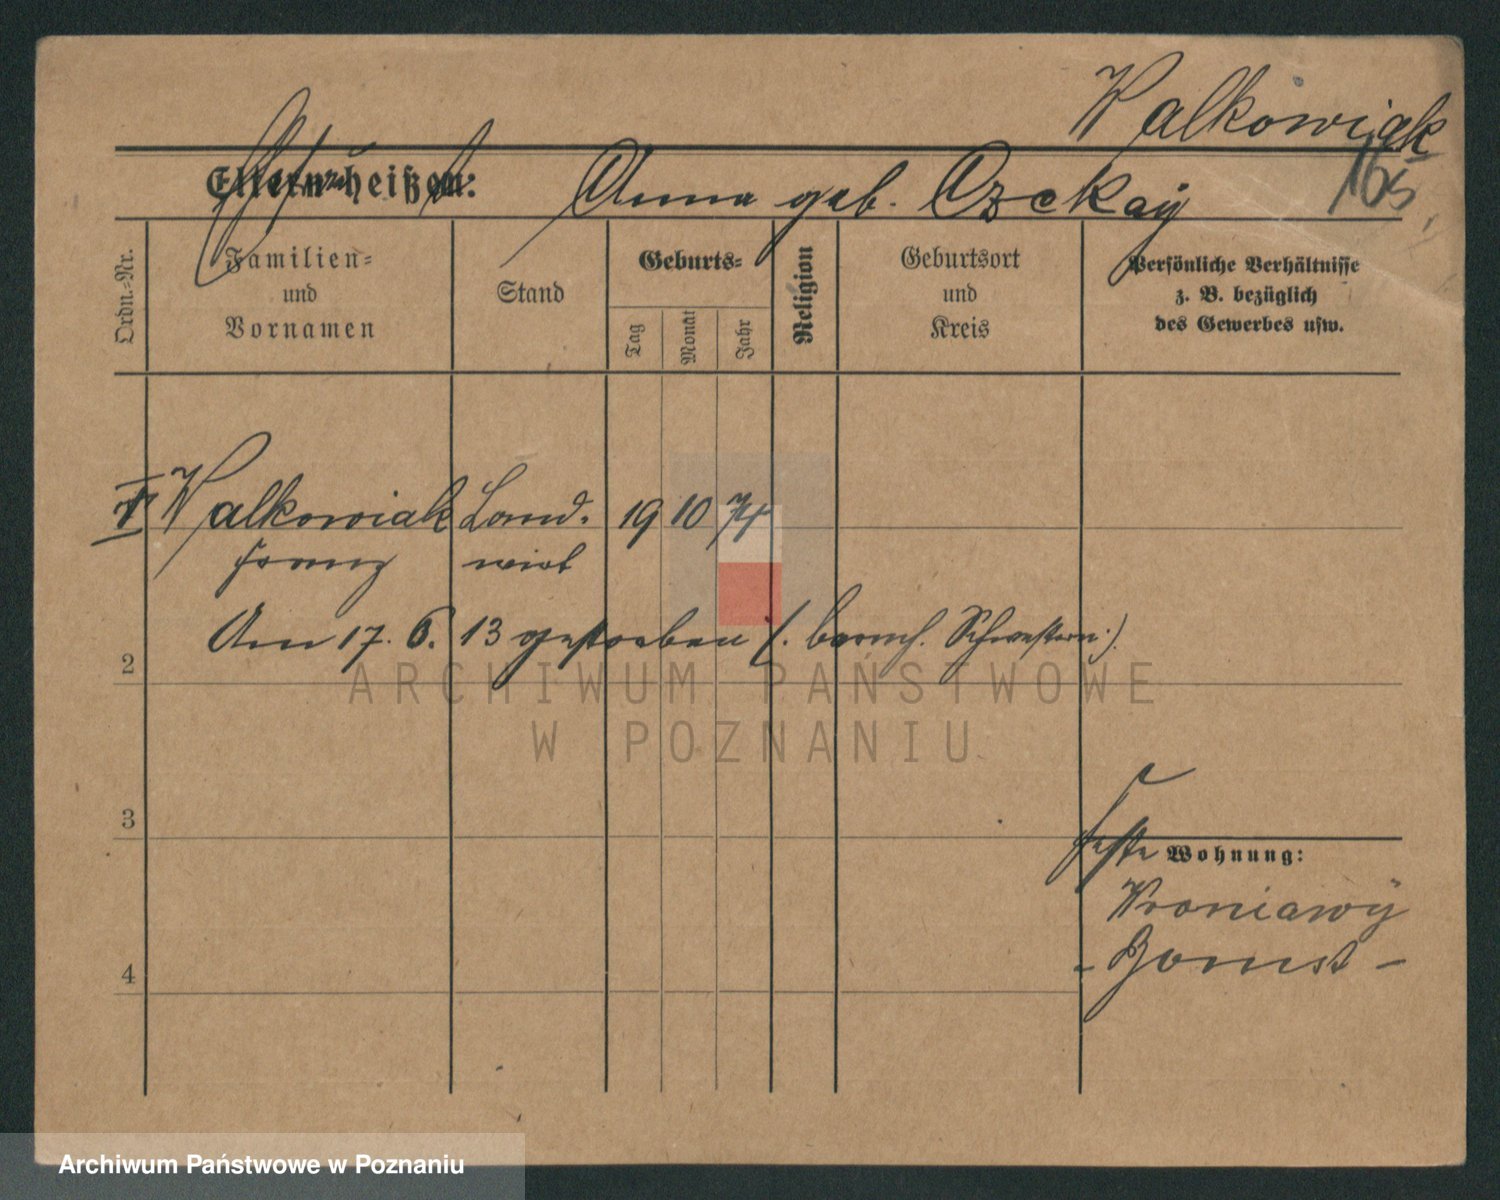 Walkowiak
165
Eltern heißen: Anna geb. Czekay
Ordn.-Nr.
Familien-
und
Vornamen
Stand
Geburts-
Tag
Monat
Jahr
Religion
Geburtsort
und
Kreis
Persönliche Verhältnisse
z. B. bezüglich
des Gewerbes usw.
Walkowiak Land- 19 10 74
Franz wirt
Am 17. 6. 13 gestorben (. barmh. Schwestern.)
2
ARCHIWUM PAŃSTWOWE
W POZNANIU
3
Wohnung:
Wroniawy
- Bomst -
4
Archiwum Państwowe w Poznaniu